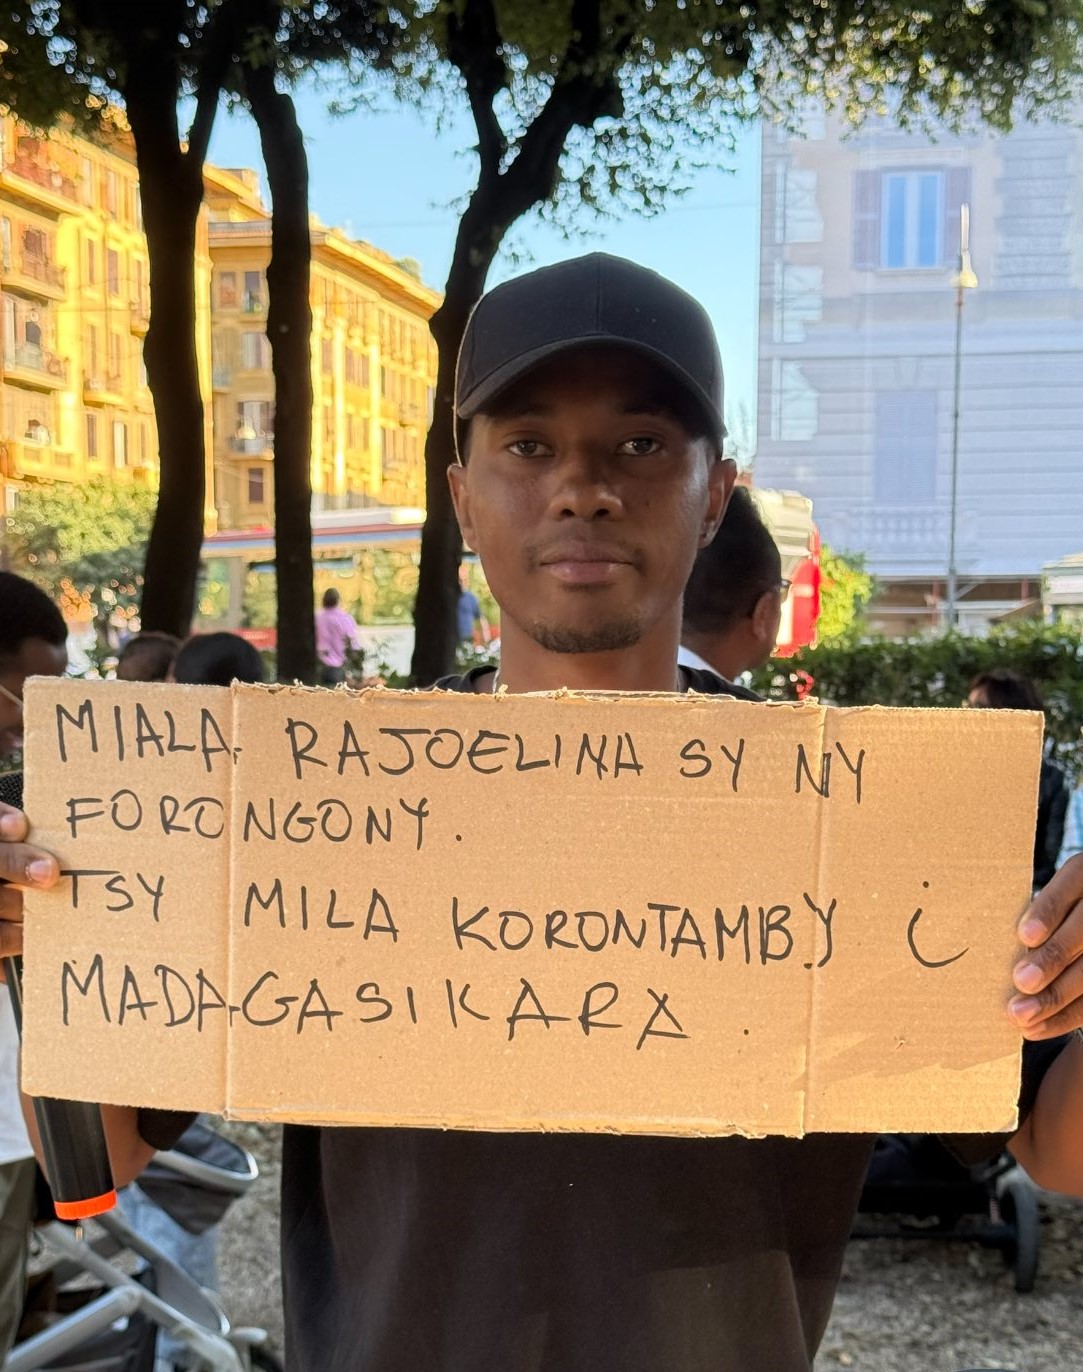 MIALA RAJOELINA SY NY
FORONGONY.
TSY MILA KORONTAMBY i
MADAGASIKARA.